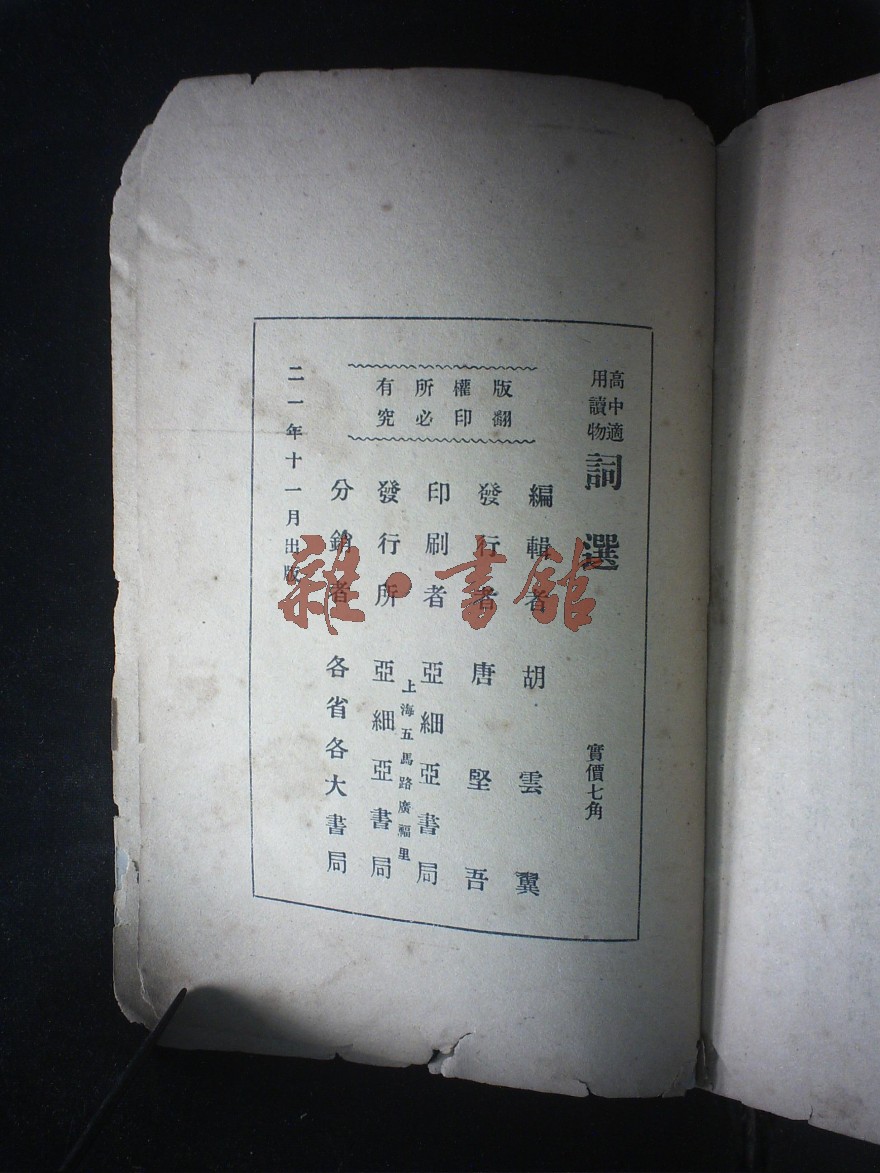 高中適
用讀物
詞選
實價七角
版權所有
翻印必究
編輯者 胡雲翼
發行者 唐堅吾
印刷者 亞細亞書局
上海五馬路廣福里
發行所 亞細亞書局
分銷者 各省各大書局
二一年十一月出版
雜·書館